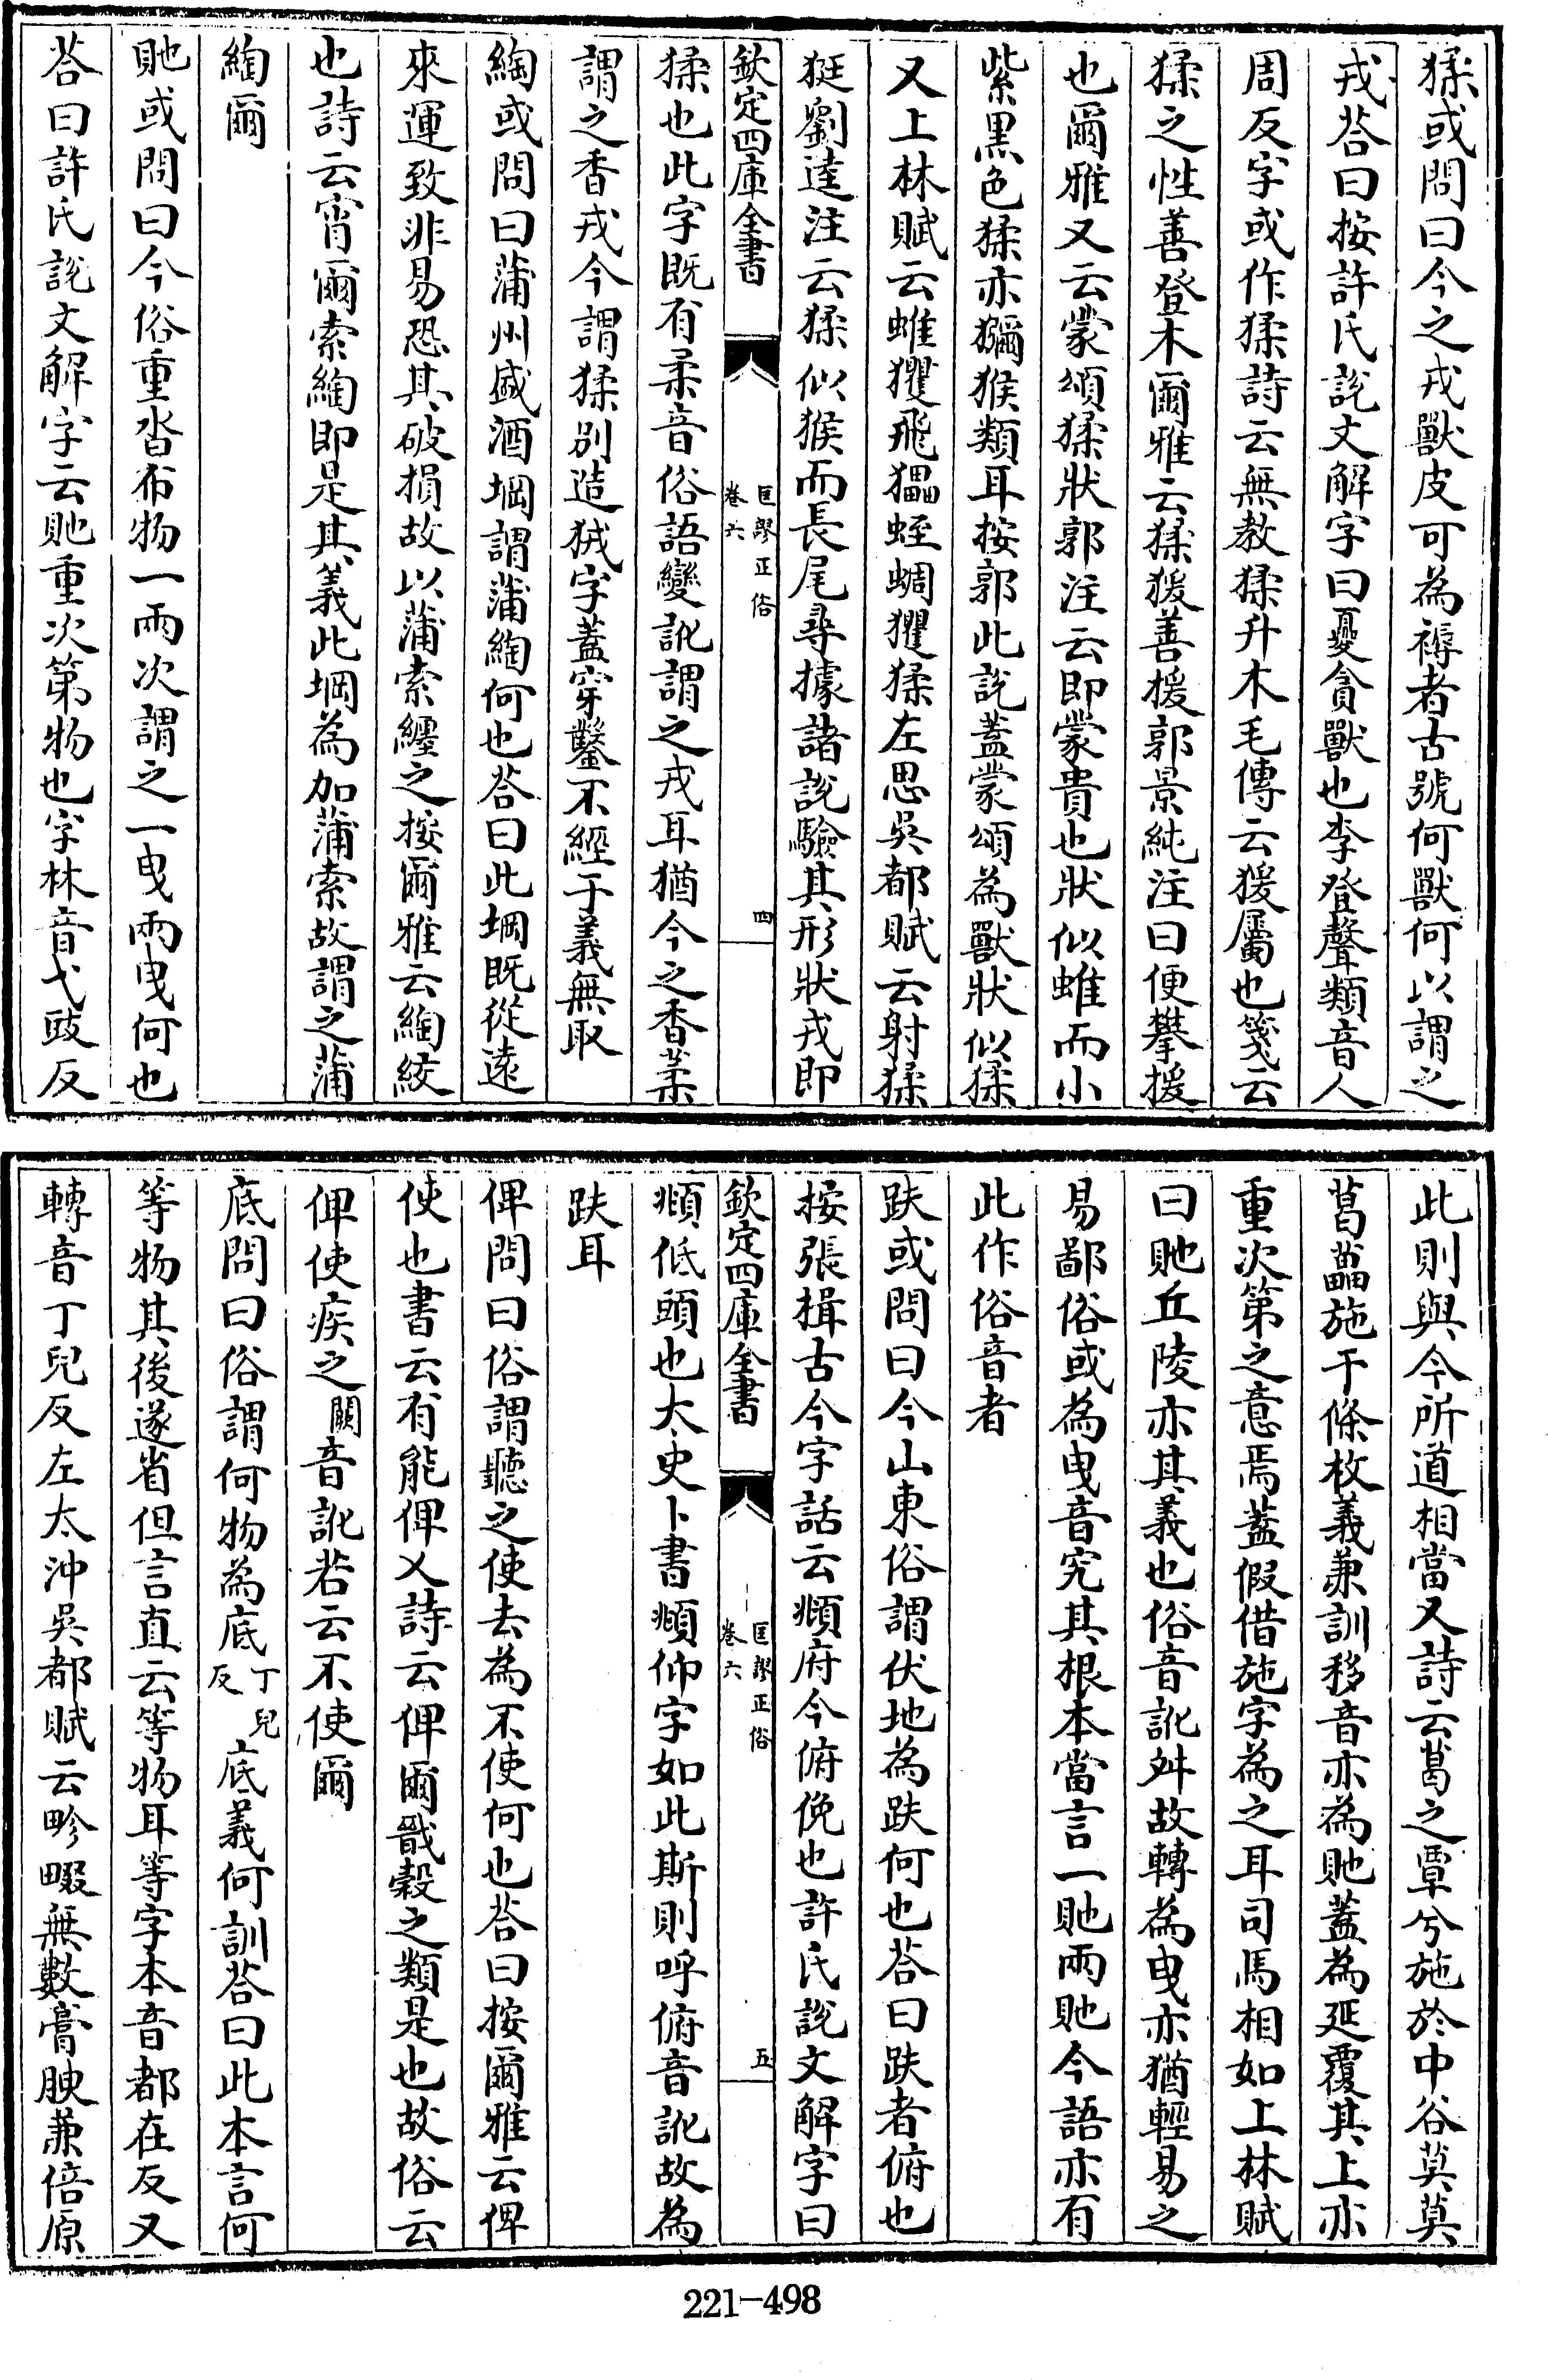 猱或問曰今之戎獸皮可為褥者古號何獸何以謂之
戎荅曰按許氏說文解字曰夒貪獸也李登聲類音人
周反字或作猱詩云無教猱升木毛傳云猨屬也箋云
猱之性善登木爾雅云猱猨善援郭景純注曰便攀援
也爾雅又云蒙頌猱狀郭注云即蒙貴也狀似蜼而小
紫黑色猱亦獼猴類耳按郭此說蓋蒙頌為獸狀似猱
又上林賦云蜼玃飛蠝蛭蜩玃猱左思吳都賦云射猱
挺劉逵注云猱似猴而長尾尋據諸說驗其形狀戎即
欽定四庫全書
匡謬正俗
卷六
四
猱也此字既有柔音俗語變訛謂之戎耳猶今之香葇
謂之香戎今謂猱別造狨字蓋穿鑿不經于義無取
綯或問曰蒲州盛酒堈謂蒲綯何也荅曰此堈既從遠
來運致非易恐其破損故以蒲索纏之按爾雅云綯絞
也詩云宵爾索綯即是其義此堈為加蒲索故謂之蒲
綯爾
貤或問曰今俗重沓布物一兩次謂之一曳兩曳何也
荅曰許氏說文解字云貤重次第物也字林音弋豉反
此則與今所道相當又詩云葛之覃兮施於中谷莫莫
葛藟施于條枚義兼訓移音亦為貤蓋為延覆其上亦
重次第之意焉蓋假借施字為之耳司馬相如上林賦
曰貤丘陵亦其義也俗音訛舛故轉為曳亦猶輕易之
易鄙俗或為曳音究其根本當言一貤兩貤今語亦有
此作俗音者
趺或問曰今山東俗謂伏地為趺何也荅曰趺者俯也
按張揖古今字話云頫府今俯俛也許氏說文解字曰
欽定四庫全書
匡謬正俗
卷六
五
頫低頭也太史卜書頫仰字如此斯則呼俯音訛故為
趺耳
俾問曰俗謂聽之使去為不使何也荅曰按爾雅云俾
使也書云有能俾乂詩云俾爾戩穀之類是也故俗云
俾使疾之闕音訛若云不使爾
底問曰俗謂何物為底丁兒反底義何訓荅曰此本言何
等物其後遂省但言直云等物耳等字本音都在反又
轉音丁兒反左太沖吳都賦云畛畷無數膏腴兼倍原
221-498